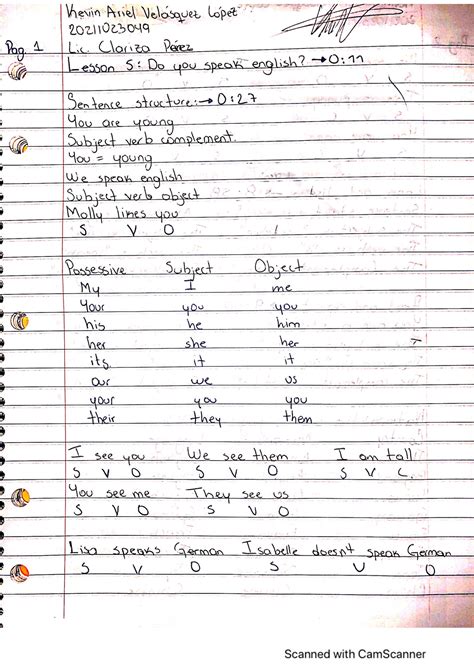 Kevin Ariel Velásquez López
20211023049
Pag. 1 Lic. Clariza Pérez
Lesson 5: Do you speak english? → 0:11
Sentence structure: → 0:27
You are young
Subject verb complement.
You = young
We speak english
Subject verb object
Molly likes you
S V O
Possessive Subject Object
My I me
Your you you
his he him
her she her
its it it
our we us
your you you
their they them
I see you We see them I am tall
S V O S V O S V C.
You see me They see us
S V O S V O
Lisa speaks German Isabelle doesn't speak German
S V O S V O
Scanned with CamScanner